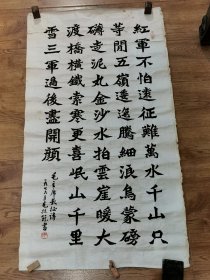 紅軍不怕遠征難萬水千山只
等閒五嶺逶迤騰細浪烏蒙磅
礴走泥丸金沙水拍雲崖暖大
渡橋橫鐵索寒更喜岷山千里
雪三軍過後盡開顏
毛主席長征詩
書